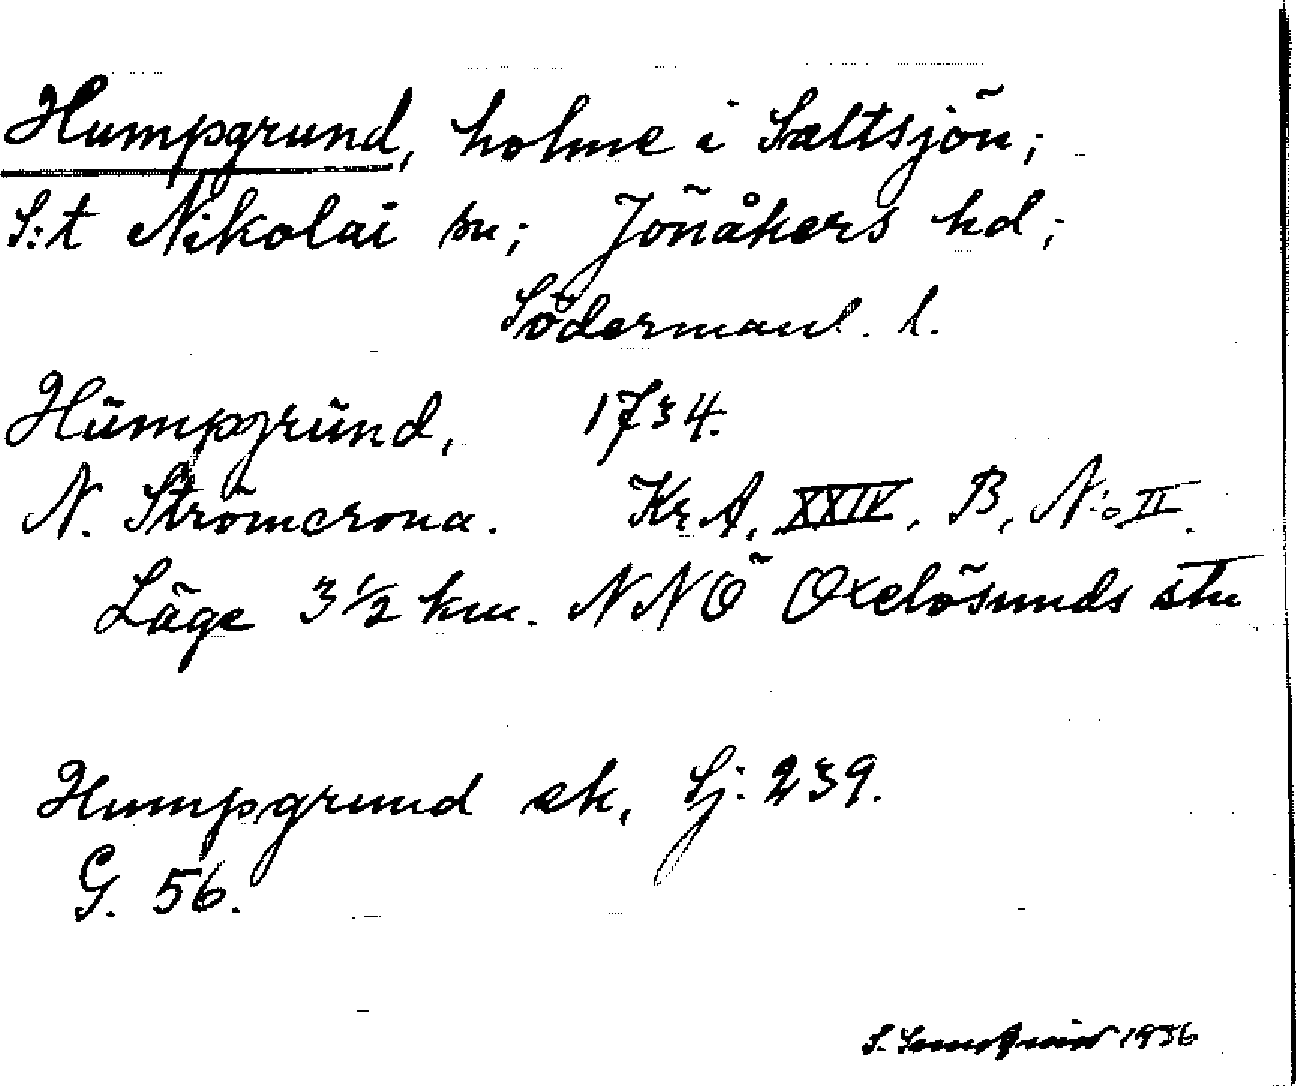 Humpgrund, holme i Saltsjön;
S:t Nikolai sn; Jönåkers hd;
Södermanl. l.
Hŭmpgrŭnd, 1734.
N. Strömcrona. Kr. A. XXIV, B, N:o II.
Läge 3 1/2 km. NNÖ Oxelösunds stn
Humpgrund ek, Sj: 239.
G. 56.
S. 1936